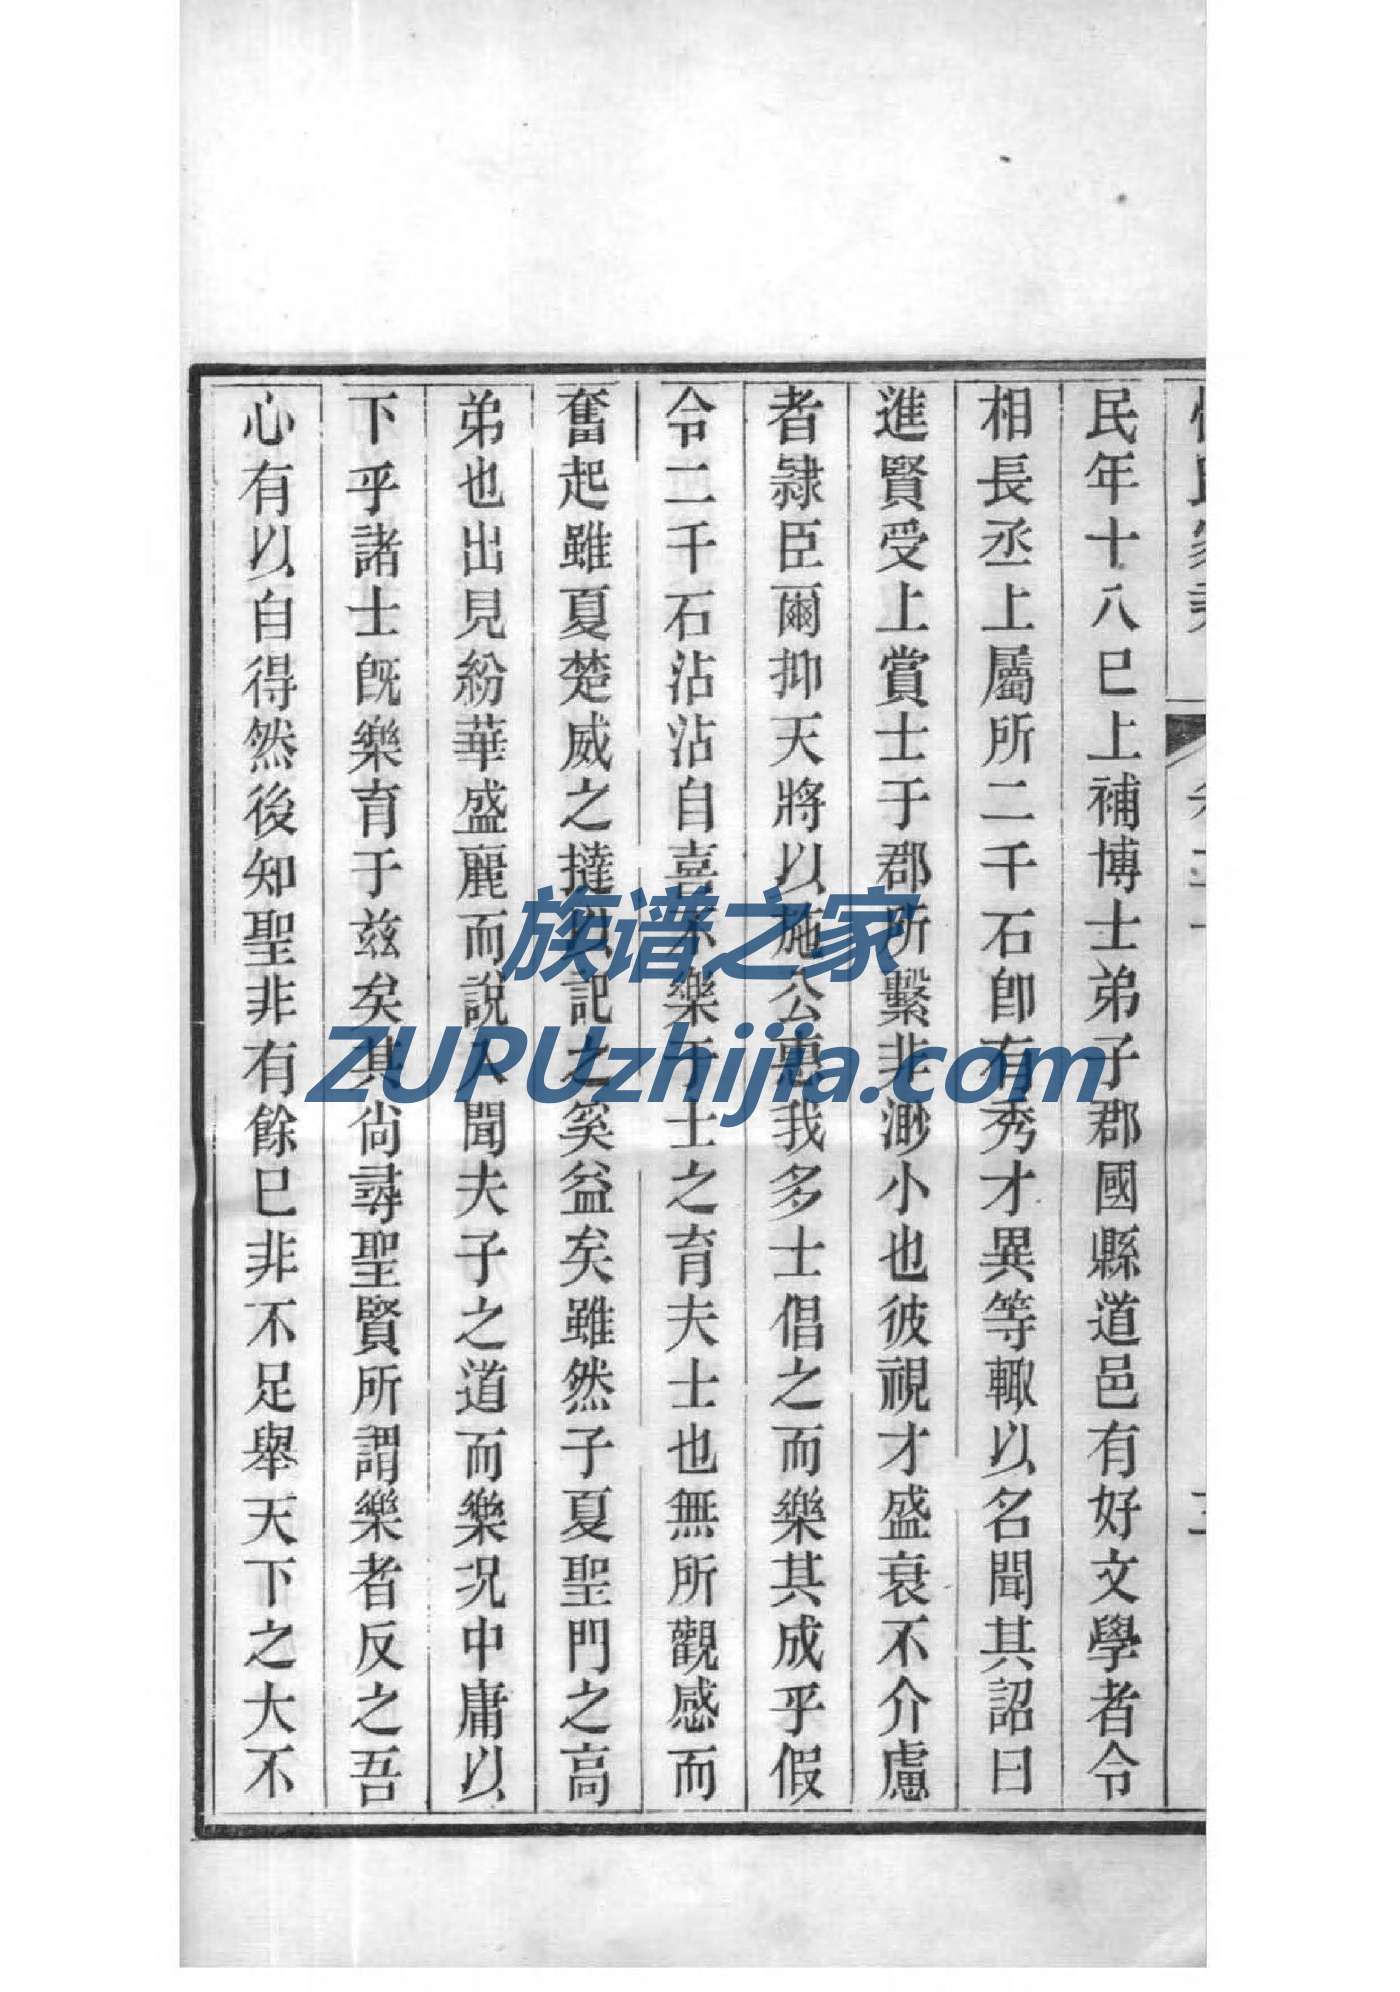 民年十八巳上補博士弟子郡國縣道邑有好文學者令
相長丞上屬所二千石卽有秀才異等輙以名聞其詔曰
進賢受上賞士于郡所繫非渺小也彼視才盛衰不介慮
者隷臣爾抑天將以施公惠我多士倡之而樂其成乎假
令二千石沾沾自喜不樂于士之育夫士也無所觀感而
奮起雖夏楚威之撻以記之奚益矣雖然子夏聖門之高
弟也出見紛華盛麗而說入聞夫子之道而樂况中庸以
下乎諸士旣樂育于兹矣其尙尋聖賢所謂樂者反之吾
心有以自得然後知聖非有餘巳非不足舉天下之大不
族谱之家
ZUPUzhijia.com